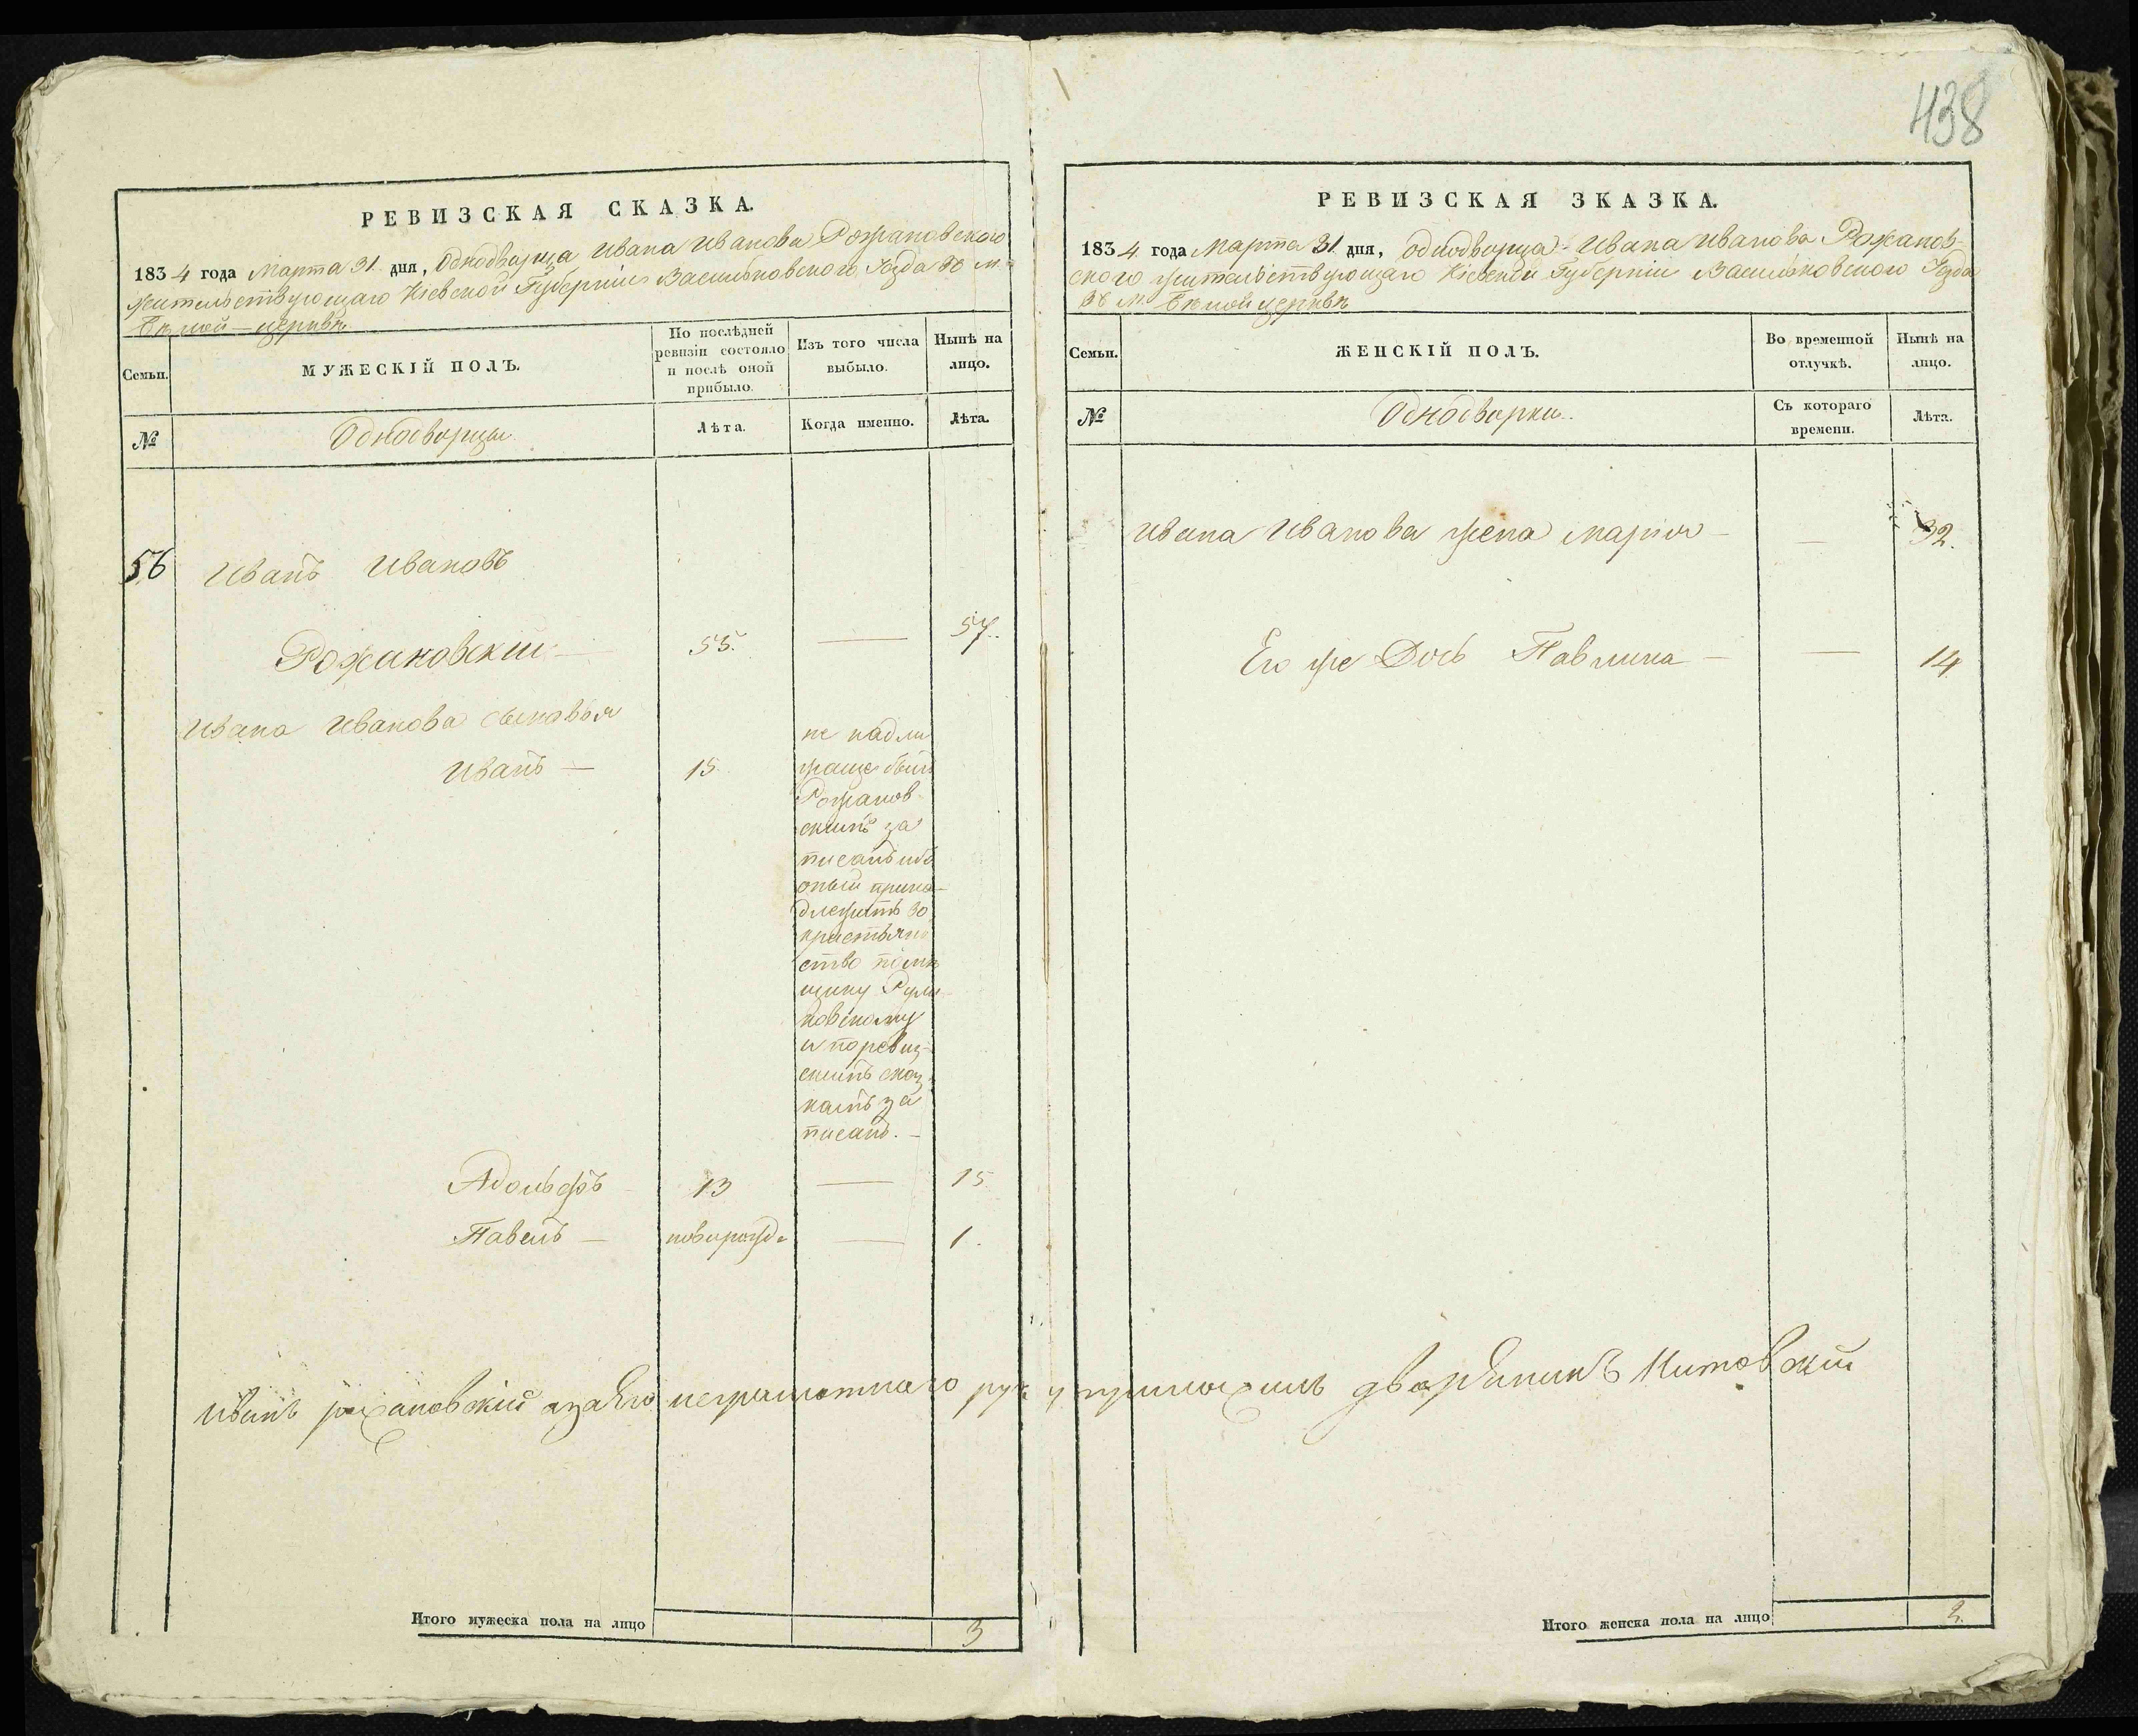 438
РЕВИЗСКАЯ СКАЗКА.
1834 года Марта 31 дня, Однодворца Ивана Иванова Рожановского
жительствующаго Кіевской Губерніи Васильковского Уезда въ м.
Бѣлой-церквѣ
Семьи.
МУЖЕСКІЙ ПОЛЪ.
По послѣдней
ревизіи состояло
и послѣ оной
прибыло.
Изъ того числа
выбыло.
Нынѣ на
лицо.
№
Однодворцы
Лѣта.
Когда именно.
Лѣта.
56
Иванъ Ивановъ
Рожановскій — 55. — 57.
Ивана Иванова сыновья
Иванъ — 15
не надли
жаще былъ
Рожанов
скимъ за
писанъ ибо
оный прина-
длежитъ во
крестьян
ство помѣ
щику Рули
ковскому
и по ревиз-
скимъ сказ
камъ за
писанъ. —
Адольфъ 13 — 15
Павелъ — новорожд — 1.
Иванъ рожановский а за Его неграмотнаго руку приложилъ дворянинъ
Итого мужеска пола на лицо 3
РЕВИЗСКАЯ ЗКАЗКА.
1834 года Марта 31 дня, однодворца Ивана Иванова Рожанов-
ского жительствующаго Кіевской Губерніи Васильковского Уезда
въ м. Бѣлой церквѣ
Семьи.
ЖЕНСКІЙ ПОЛЪ.
Во временной
отлучкѣ.
Нынѣ на
лицо.
№
Однодворки.
Съ котораго
времени.
Лѣта.
Ивана Иванова жена Марія — — 32.
Его же Дочь Павлина — — 14
Итого женска пола на лицо 2.